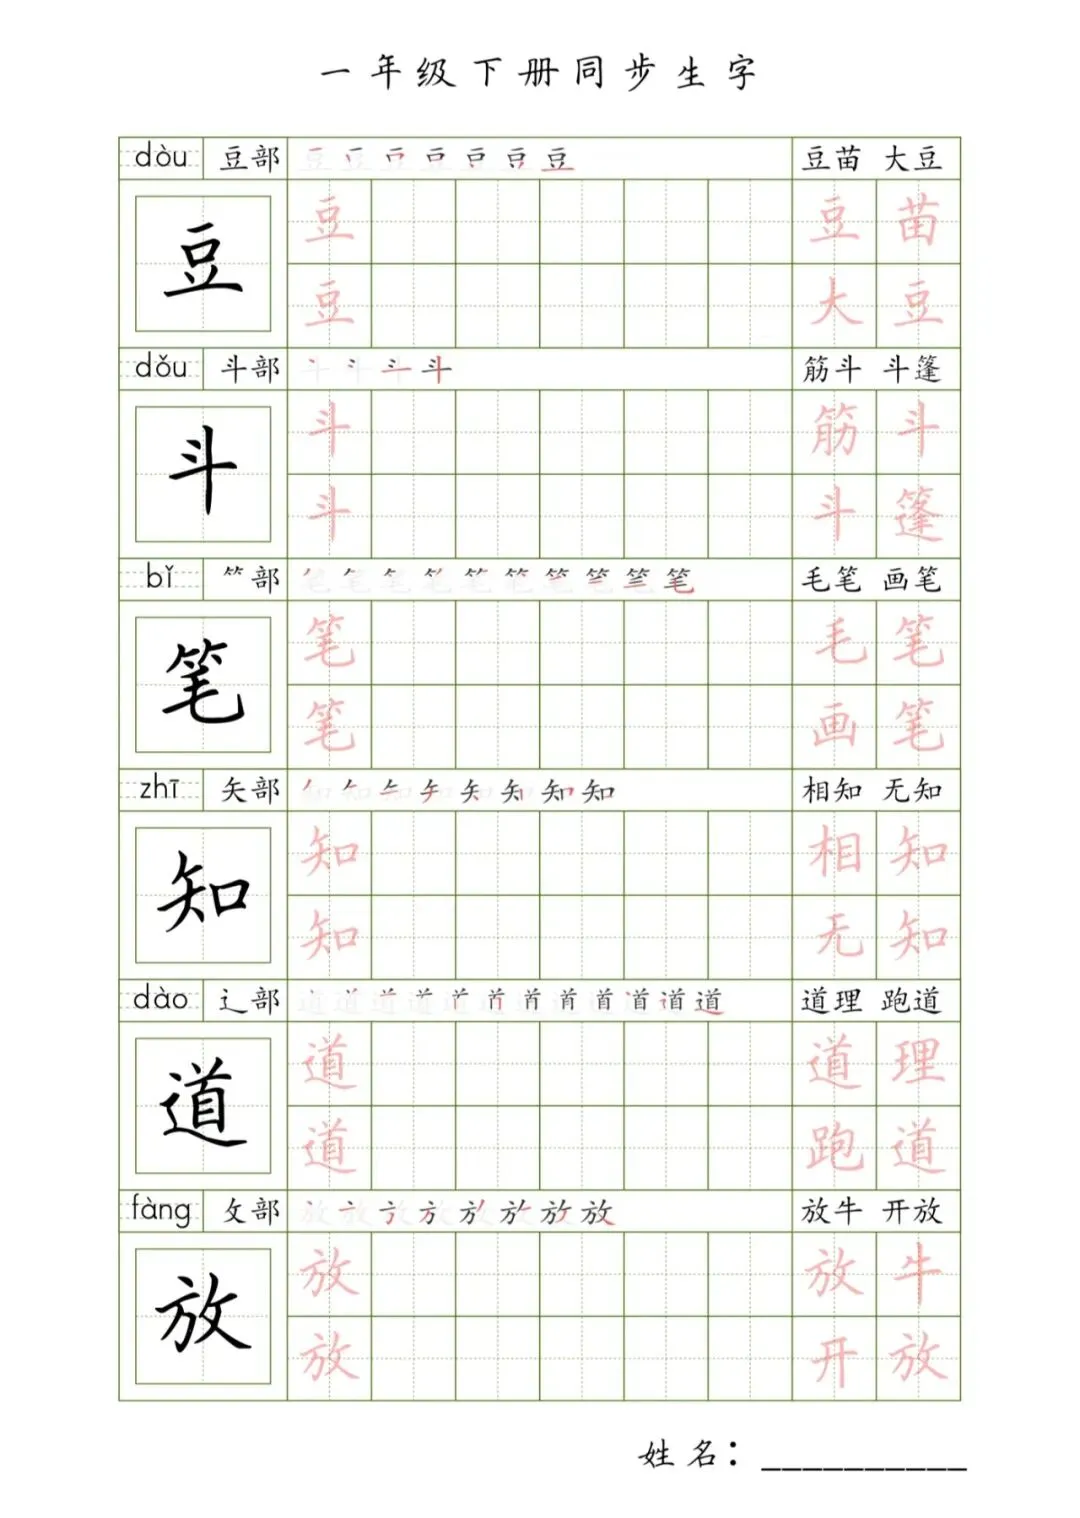 一年级下册同步生字
dòu 豆部 豆 豆 豆 豆 豆 豆 豆 豆苗 大豆
豆 豆 豆 苗
豆 大 豆
dǒu 斗部 斗 斗 斗 斗 筋斗 斗篷
斗 斗 筋 斗
斗 斗 篷
bǐ ⺮部 笔 笔 笔 笔 笔 笔 笔 笔 笔 笔 毛笔 画笔
笔 笔 毛 笔
笔 画 笔
zhī 矢部 知 知 知 知 知 知 知 知 相知 无知
知 知 相 知
知 无 知
dào 辶部 道 道 道 道 道 道 道 道 道 道 道 道 道理 跑道
道 道 道 理
道 跑 道
fàng 攵部 放 放 放 放 放 放 放 放 放牛 开放
放 放 放 牛
放 开 放
姓名：__________